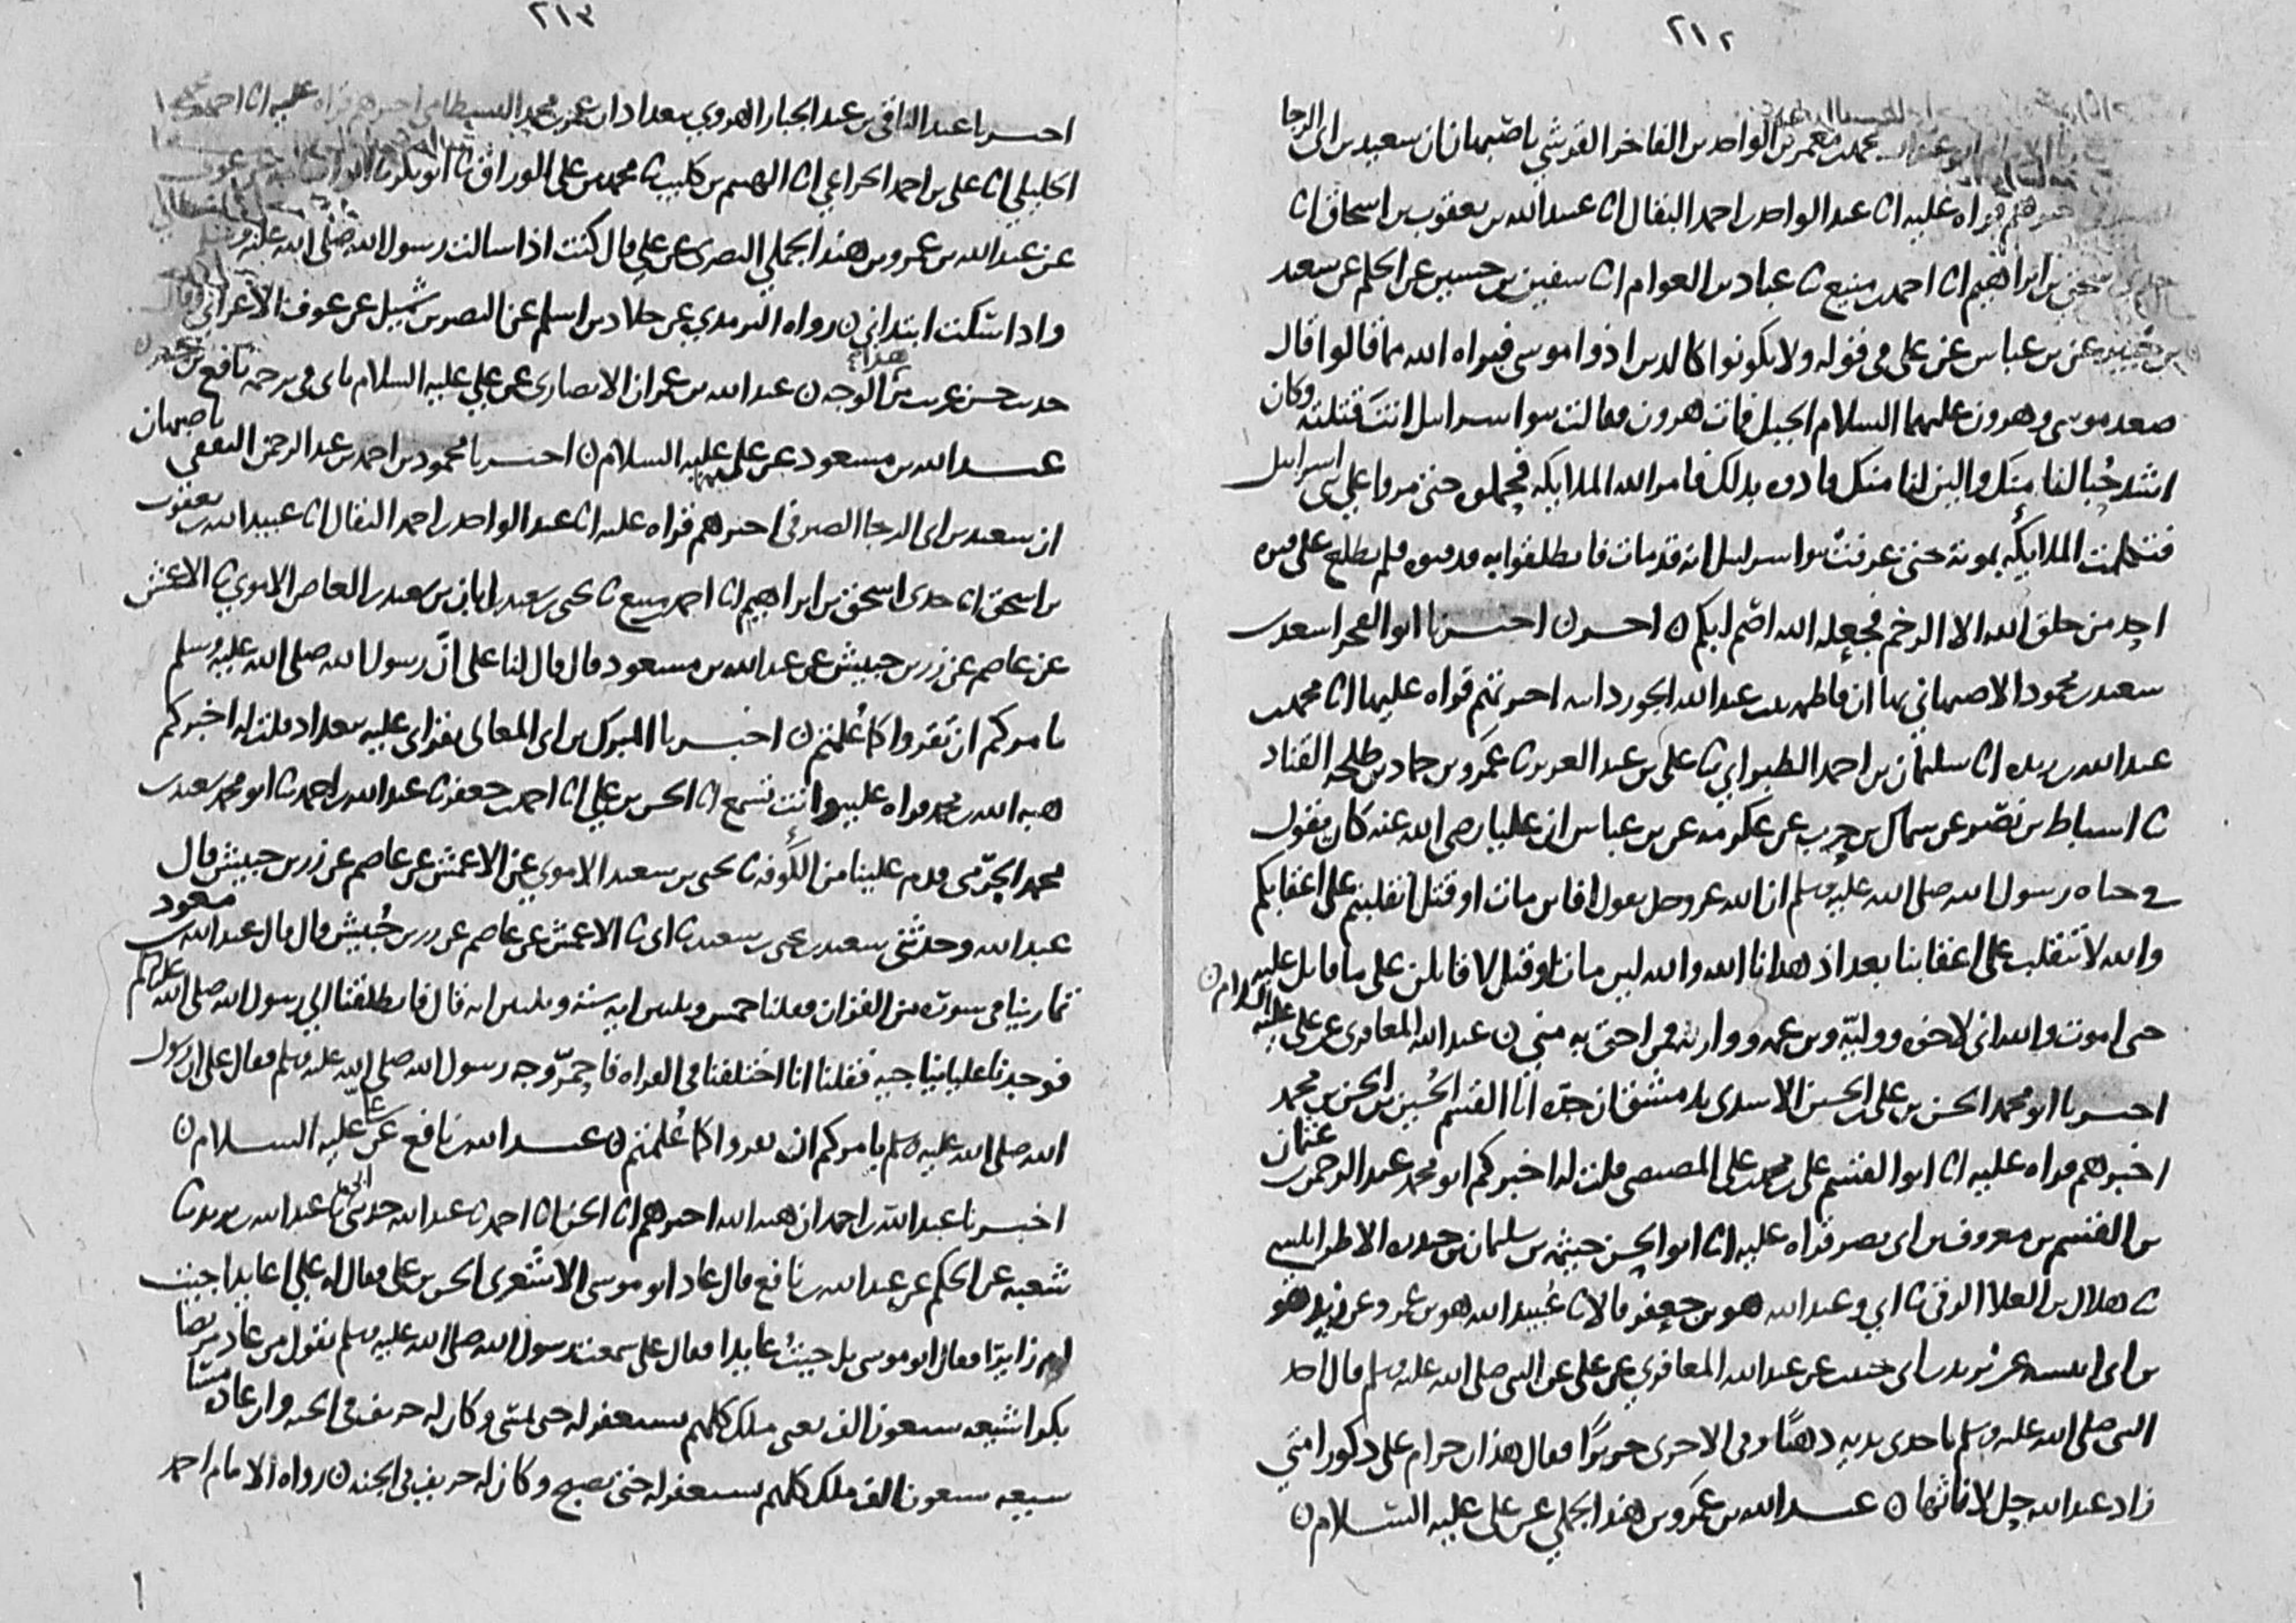 ٢١٢
محمد بن معمر بن الواحد بن الفاخر القرشي باصبهان ان سعيد بن ابي الرجا
اخبرهم قراه عليه انا عبد الواحد بن احمد البقال انا عبيد الله بن يعقوب بن اسحاق انا
اسحق بن ابراهيم انا احمد بن منيع ثنا عباد بن العوام انا سفين بن حسين عن الحكم عن سعيد
بن جبير عن بن عباس عن علي في قوله ولا يكونوا كالذين اذوا موسى فبراه الله مما قالوا قال
صعد موسى وهرون عليهما السلام الجبل فمات هرون فقالت بنوا اسرايل انت قتلته وكان
اشد حبا لنا منك والين لنا منك فاذوه بذلك فامر الله الملايكه فحملوه حتى مروا على بني اسرايل
فتكلمت الملايكه بموته حتى عرفت بنوا اسرايل انه قد مات فانطلقوا به فدفنوه فلم يطلع على قبره
احد من خلق الله الا الرخم فجعله الله اصم ابكم ن اخر ن اخبرنا ابو الفخر اسعد بن
سعيد بن محمود الاصبهاني بها ان فاطمه بنت عبد الله الجوزدانيه اخبرتهم قراه عليها انا محمد بن
عبد الله بن ريده انا سليمان بن احمد الطبراني ثنا علي بن عبد العزيز ثنا عمرو بن حماد بن طلحه القناد
ثنا اسباط بن نصر عن سماك بن حرب عن عكرمه عن بن عباس ان عليا رضي الله عنه كان يقول
في حياه رسول الله صلى الله عليه وسلم ان الله عز وجل يقول افاين مات او قتل انقلبتم على اعقابكم
والله لا ننقلب على اعقابنا بعد اذ هدانا الله والله لين مات او قتل لاقاتلن على ما قاتل عليه
حتى اموت والله اني لاخوه ووليه وبن عمه ووارثه فمن احق به مني ن عبد الله المعافري عن علي عليه السلام ن
اخبرنا ابو محمد الحسن بن علي بن الحسين الاسدي بدمشق ان جده ابا القسم الحسين بن الحسن بن محمد
اخبرهم قراه عليه انا ابو القسم علي بن محمد بن علي المصيصي قلت له اخبركم ابو محمد عبد الرحمن بن عثمان
بن القسم بن معروف بن ابي نصر قراه عليه انا ابو الحسن خيثمه بن سليمان بن حيدره الاطرابلسي
ثنا هلال بن العلا الرقي ثنا ابي وعبد الله هو بن جعفر قالا ثنا عبيد الله هو بن عمرو عن زيد هو
بن ابي انيسه عن يزيد بن ابي حبيب عن عبد الله المعافري عن علي عن النبي صلى الله عليه وسلم قال اخذ
النبي صلى الله عليه وسلم باحدى يديه ذهبا وفي الاخرى حريرا فقال هذان حرام على ذكور امتي
زاد عبد الله حل لاناثها ن عبد الله بن عمرو بن هند الجملي عن علي عليه السلام ن
٢١٣
اخبرنا عبد الباقي بن عبد الجبار الهروي ببغداد ان عمر بن محمد البسطامي اخبرهم قراه عليه انا احمد بن محمد
الخليلي انا علي بن احمد الخزاعي انا الهيثم بن كليب ثنا محمد بن علي الوراق ثنا ابو بكر
عن عبد الله بن عمرو بن هند الجملي عن علي قال كنت اذا سالت رسول الله صلى الله عليه وسلم
واذا سكت ابتداني ن رواه الترمذي عن خلاد بن اسلم عن النضر بن شميل عن عوف الاعرابي وقال
حديث حسن غريب من هذا الوجه ن عبد الله بن عمران الانصاري عن علي عليه السلام ياتي في ترجمه نافع بن
عبد الله بن مسعود عن علي عليهما السلام ن اخبرنا محمود بن احمد بن عبد الرحمن الثقفي باصبهان
ان سعيد بن ابي الرجا الصيرفي اخبرهم قراه عليه انا عبد الواحد بن احمد البقال انا عبيد الله بن يعقوب
بن اسحق انا جدي اسحق بن ابراهيم انا احمد بن منيع ثنا يحيى بن سعيد بن ابان بن سعيد بن العاص الاموي ثنا الاعمش
عن عاصم عن زر بن حبيش عن عبد الله بن مسعود قال قال لنا علي ان رسول الله صلى الله عليه وسلم
يامركم ان تقروا كما علمتم ن اخبرنا المبرك بن ابي المعالي بقراتي عليه ببغداد قلت له اخبركم
هبه الله بن محمد قراه عليه وانت تسمع انا الحسن بن علي انا احمد بن جعفر ثنا عبد الله بن احمد ثنا ابو محمد سعيد بن
محمد الجرمي قدم علينا من الكوفه ثنا يحيى بن سعيد الاموي عن الاعمش عن عاصم عن زر بن حبيش قال
عبد الله وحدثني سعيد بن يحيى بن سعيد ثنا ابي ثنا الاعمش عن عاصم عن زر بن حبيش قال قال عبد الله بن مسعود
تمارينا في سوره من القران فقلنا خمس وثلثين ايه ست وثلثين ايه قال فانطلقنا الى رسول الله صلى الله عليه وسلم
فوجدنا عليا يناجيه فقلنا انا اختلفنا في القراه فاحمر وجه رسول الله صلى الله عليه وسلم فقال علي ان رسول
الله صلى الله عليه وسلم يامركم ان تقروا كما علمتم ن عبد الله بن نافع عن علي عليه السلام ن
اخبرنا عبد الله بن احمد ان هبه الله اخبرهم انا الحسن انا احمد ثنا عبد الله حدثني ابي ثنا عبد الله بن يزيد ثنا
شعبه عن الحكم عن عبد الله بن نافع قال عاد ابو موسى الاشعري الحسن بن علي فقال له علي اعايدا جيت
ام زايرا فقال ابو موسى بل جيت عايدا فقال علي سمعت رسول الله صلى الله عليه وسلم يقول من عاد مريضا
بكرا شيعه سبعون الف يعني ملك كلهم يستغفر له حتى يمسي وكان له خريف في الجنه وان عاده مسا
شيعه سبعون الف ملك كلهم يستغفر له حتى يصبح وكان له خريف في الجنه ن رواه الامام احمد